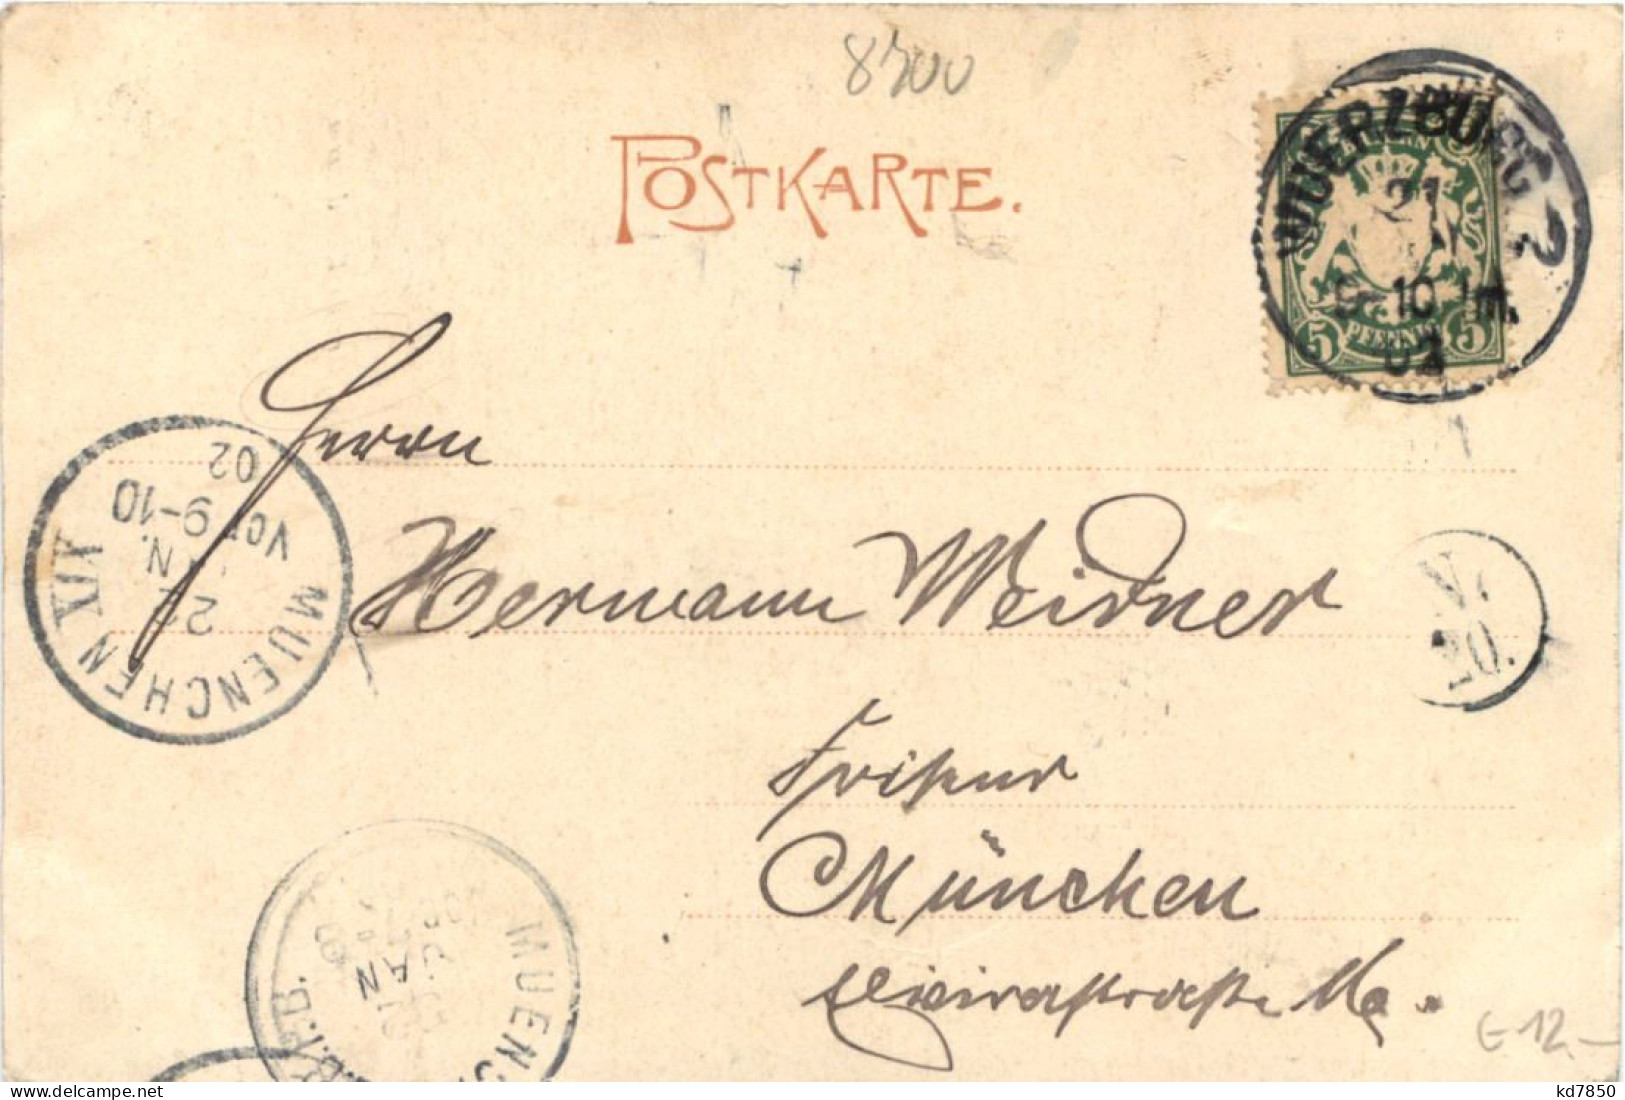 8700
POSTKARTE.
WUERZBURG 2
21
9-10
02
BAYERN
5 PFENNIG 5
Herrn
MUENCHEN XIX
JAN.
Vor 9-10
02
Hermann Weidner
V.
20.
Friseur
München
MUENCH
JAN
€ 12.-
kd7850